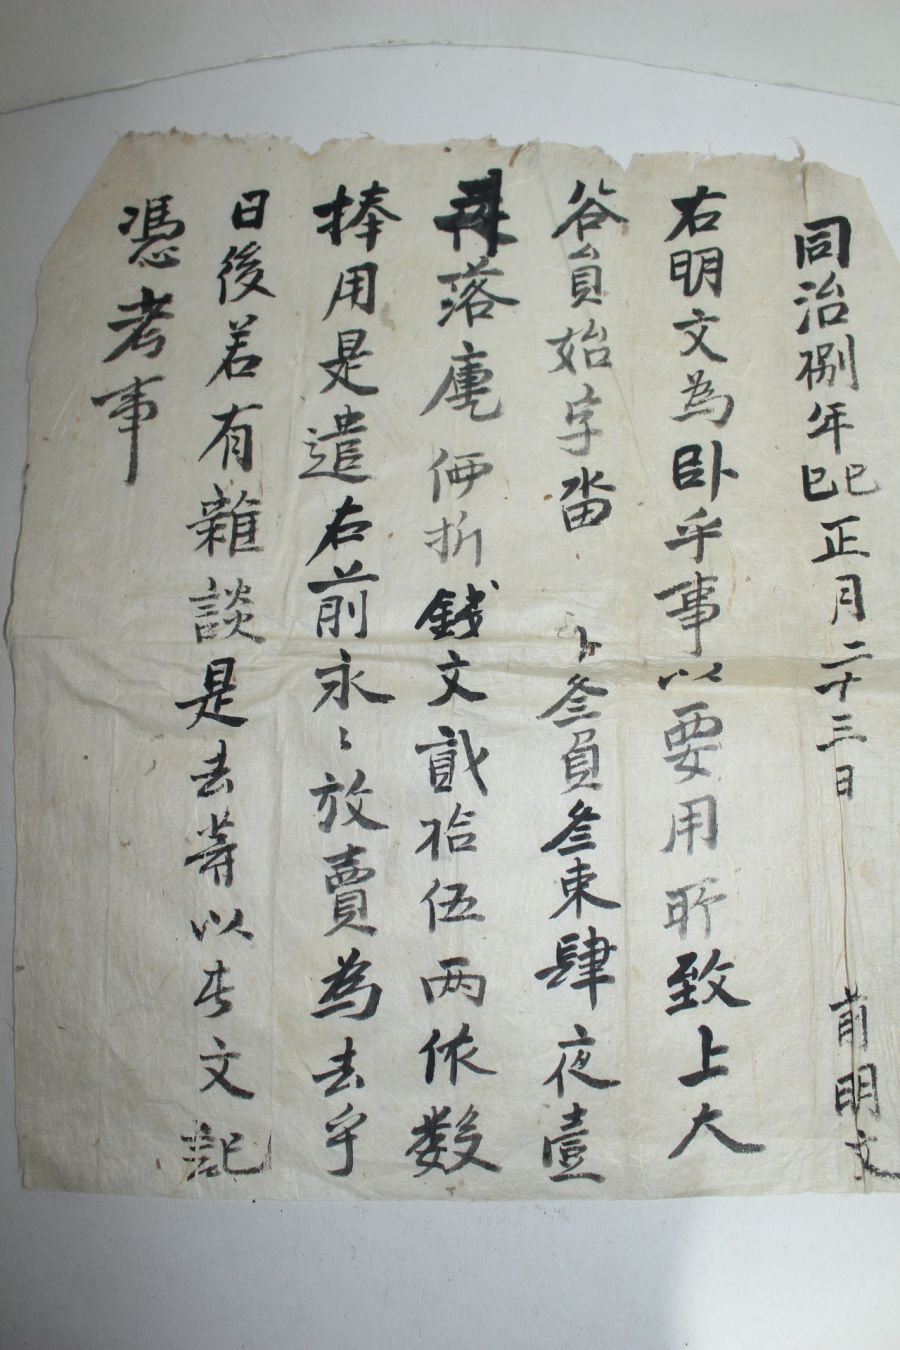 同治捌年己巳正月二十三日 前明文
右明文為卧乎事以要用所致上大
谷員始字畓 卜叁負叁束肆夜壹
斗落庫㐣折錢文貳拾伍兩依数
捧用是遣右前永〻放賣為去乎
日後若有雜談是去等以此文記
憑考事